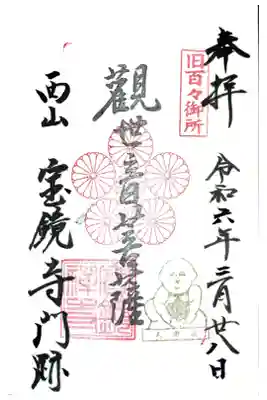 奉拝
旧百々御所
令和六年三月廿八日
觀世音菩薩
西山
宝鏡寺門跡